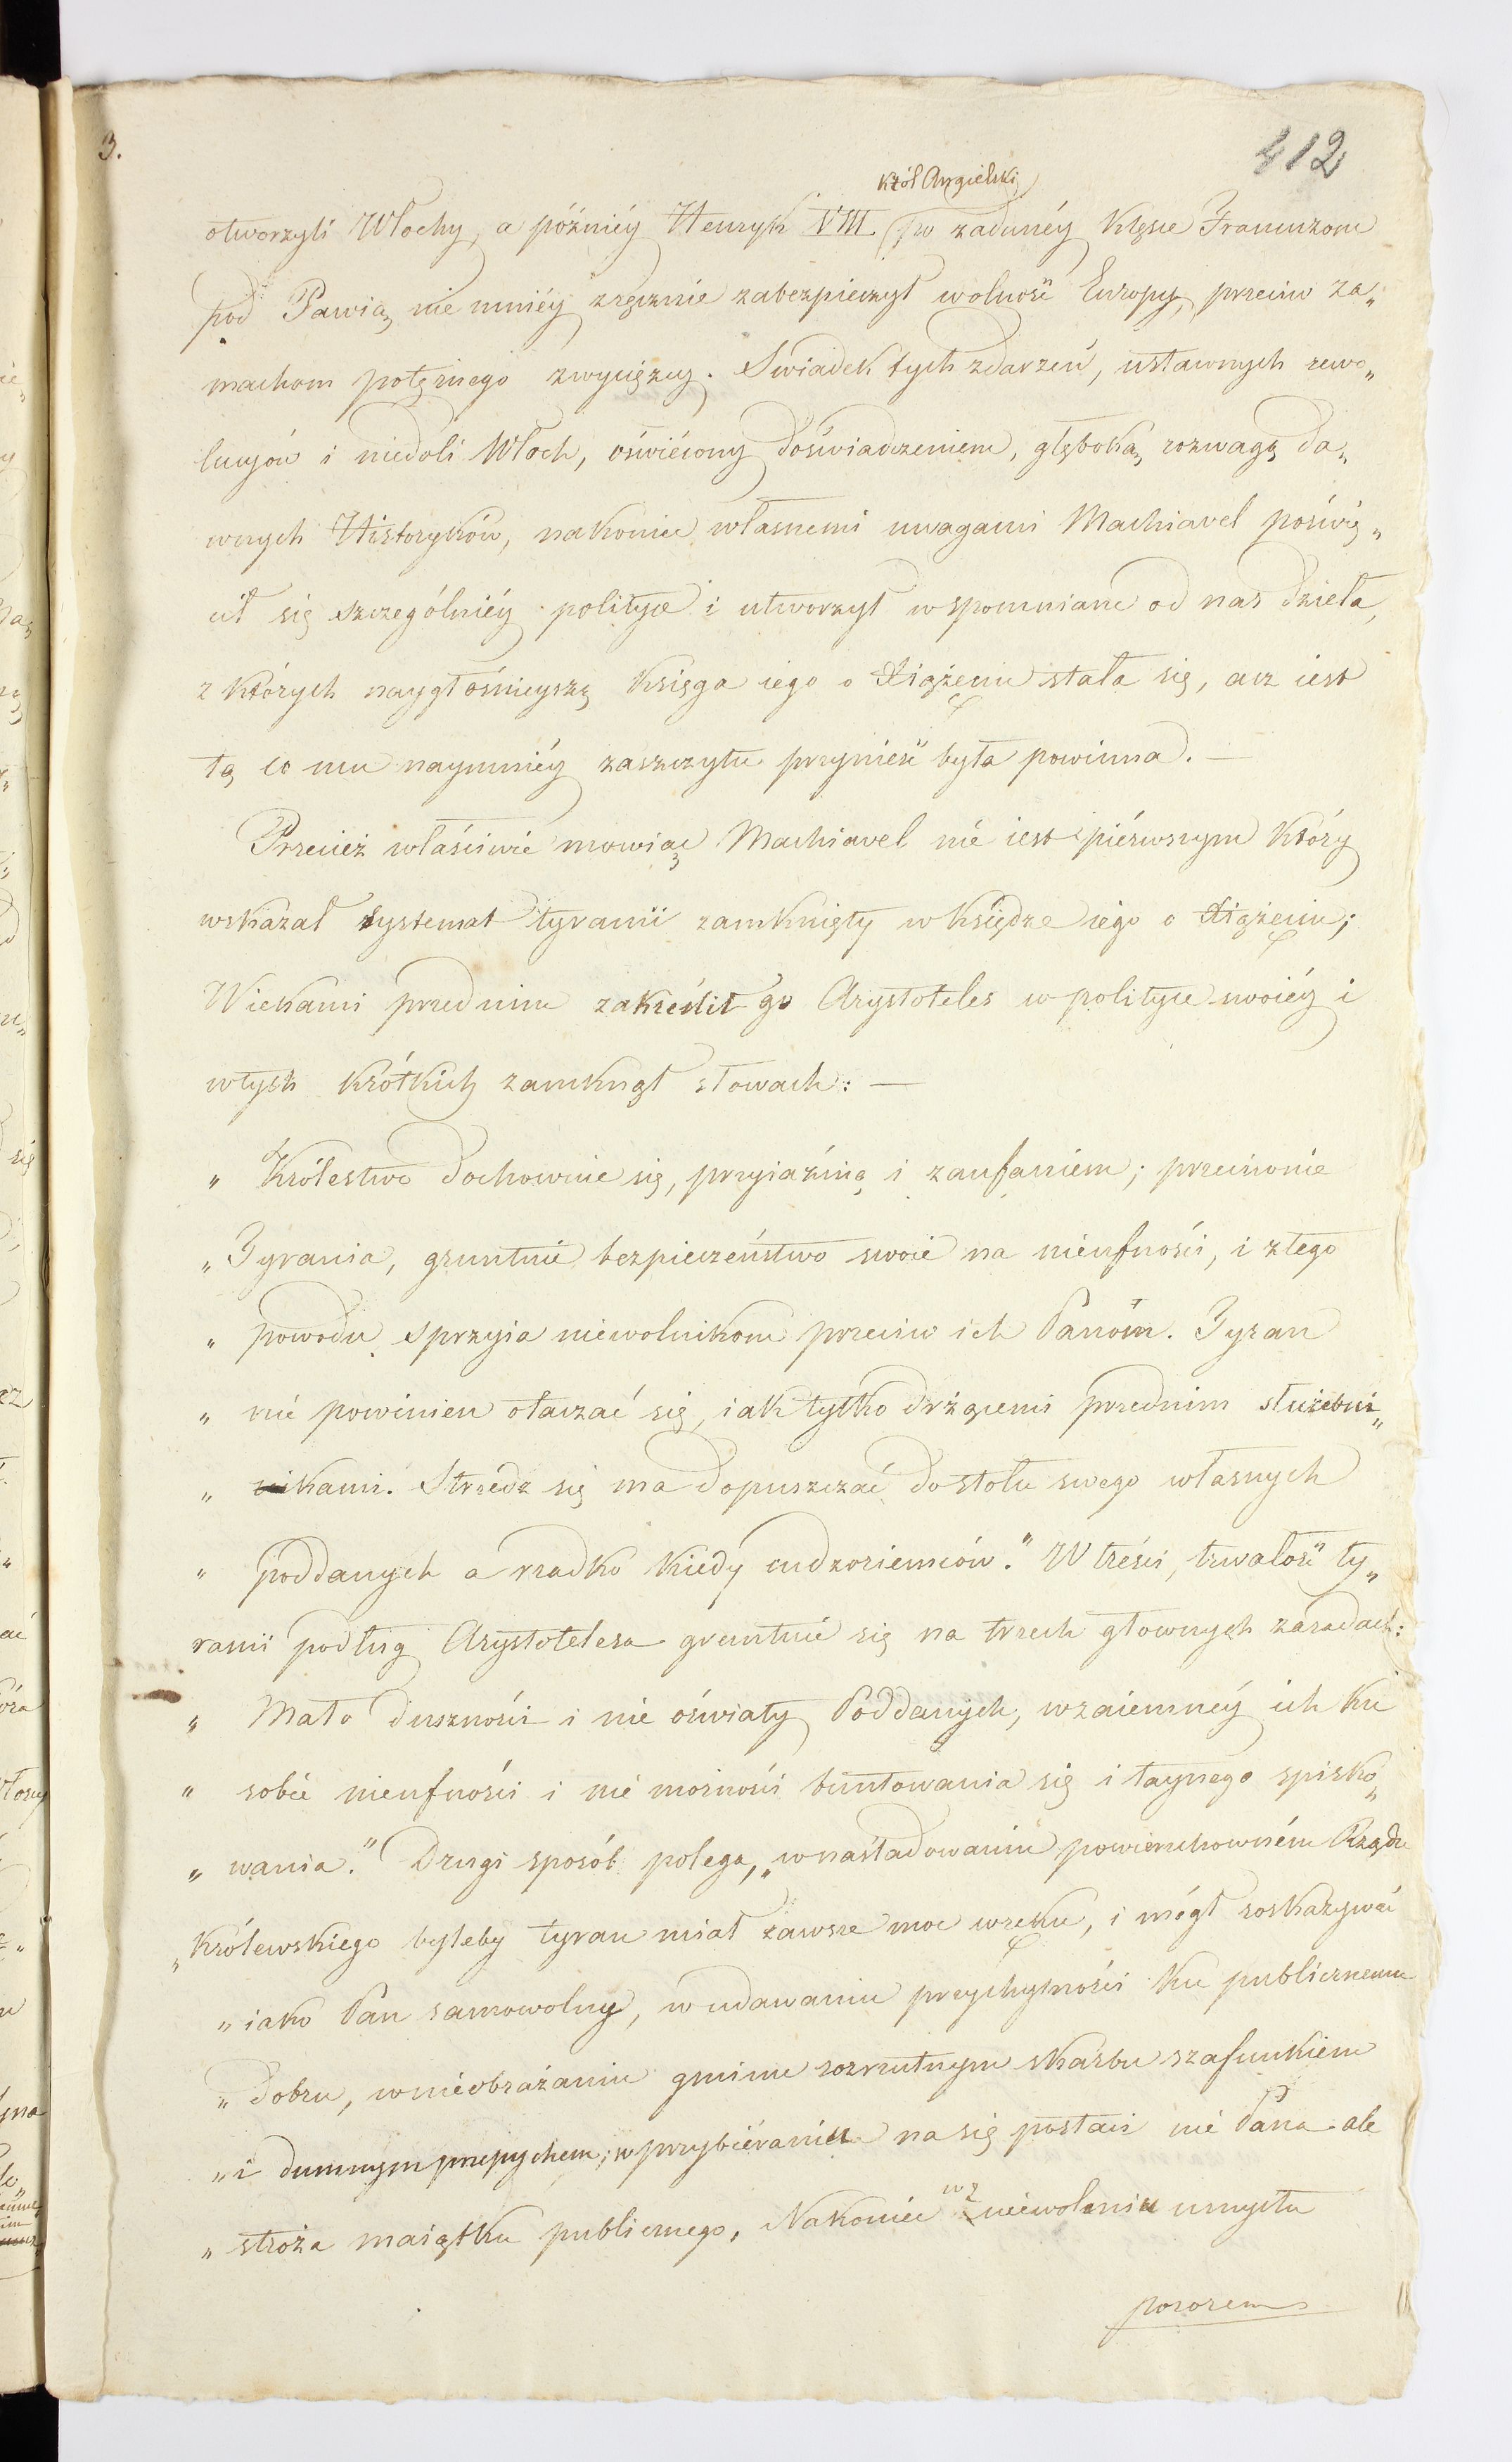 3.
412
Król Angielski
otworzyli Włochy, a późniéy Henryk VIII. po zadanéy klęsce Francuzom
pod Pawią, nie mniéy zręcznie zabezpieczył wolność Europy, przeciw za„
machom potężnego zwycięzcy. Swiadek tych zdarzeń, ustawnych rewo„
lucyów i niedoli Włoch, oświécony doświadczeniem, głęboką rozwagą da„
wnych Historyków, nakoniec własnemi uwagami Machiavel poświę„
cił się szczególniéy polityce i utworzył wspomniane od nas dzieła,
z których naygłośnieyszą Księga iego o Xiążęciu stała się, acz iest
tą co mu naymniéy zaszczytu przynieść była powinna. —
Przecież właściwie mowiąc Machiavel nié iest piérwszym który
wskazał systemat tyranii zamknięty w księdze iego o Xiążęciu;
Wiekami przed nim zakreślił go Arystoteles w polityce swoiéy i
w tych krótkich zamknął słowach: —
„ Królestwo dochowuie się, przyiaźnią i zaufaniem; przeciwnie
„ Tyrania, gruntuie bezpieczeństwo swoie na nieufności, i z tego
„ powodu sprzyia niewolnikom przeciw ich Panóm. Tyran
„ nié powinien otaczać się, iak tylko drżącemi przed nim służebni„
„ kami. Strzedz się ma dopuszczać do stołu swego własnych
„ poddanych a rzadko kiedy cudzoziemców." W tréści, trwałość ty„
ranii podług Arystotelesa gruntuié się na trzech głownych zasadach:
„ Mało duszności i nié oświaty Poddanych, wzaiemnéy ich ku
„ sobié nieufności i nié możności buntowania się i taynego spisko„
„ wania." Drugi sposób polega, „w naśladowaniu powierzchowném Rządu
„ Królewskiego byleby tyran miał zawsze moc w ręku, i mógł roskazywać
„ iako Pan samowolny, w udawaniu przychylności ku publicznemu
„ dobru, w nieobrażaniu gminu rozrzutnym skarbu szafunkiem
„ i dumnym przepychem; w przybiéraniu na się postaci nié Pana ale
„ stroża maiątku publicznego, Nakoniec w zniewoleniu umysłu
pozorem